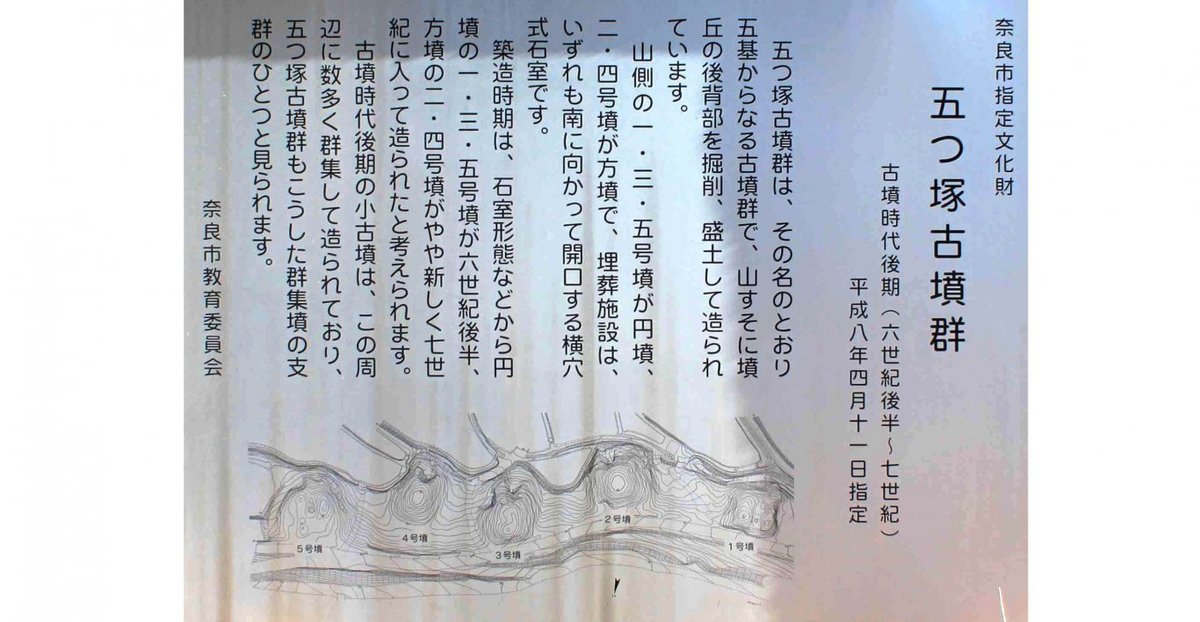 奈良市指定文化財
五つ塚古墳群
古墳時代後期(六世紀後半~七世紀)
平成八年四月十一日指定
五つ塚古墳群は、その名のとおり
五基からなる古墳群で、山すそに墳
丘の後背部を掘削、盛土して造られ
ています。
山側の一・三・五号墳が円墳、
二・四号墳が方墳で、埋葬施設は、
いずれも南に向かって開口する横穴
式石室です。
築造時期は、石室形態などから円
墳の一・三・五号墳が六世紀後半、
方墳の二・四号墳がやや新しく七世
紀に入って造られたと考えられます。
古墳時代後期の小古墳は、この周
辺に数多く群集して造られており、
五つ塚古墳群もこうした群集墳の支
群のひとつと見られます。
奈良市教育委員会
5号墳
4号墳
3号墳
2号墳
1号墳